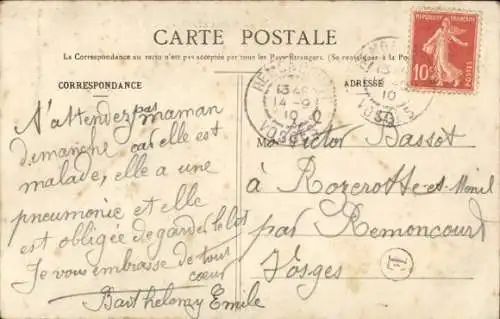 CARTE POSTALE
La Correspondance au recto n'est pas acceptée par tous les Pays Étrangers. (Se renseigner à la Poste)
CORRESPONDANCE
ADRESSE
RÉPUBLIQUE FRANÇAISE
10c
POSTES
13
14-9
10
VOSGES
13
10
N'attendez pas maman
dimanche car elle est
malade, elle a une
pneumonie et elle
est obligée de garder le lit
Je vous embrasse de tout
coeur
Barthelemy Emile
Victor Bassot
à Rozerotte-et-Menil
par Remoncourt
Vosges
E